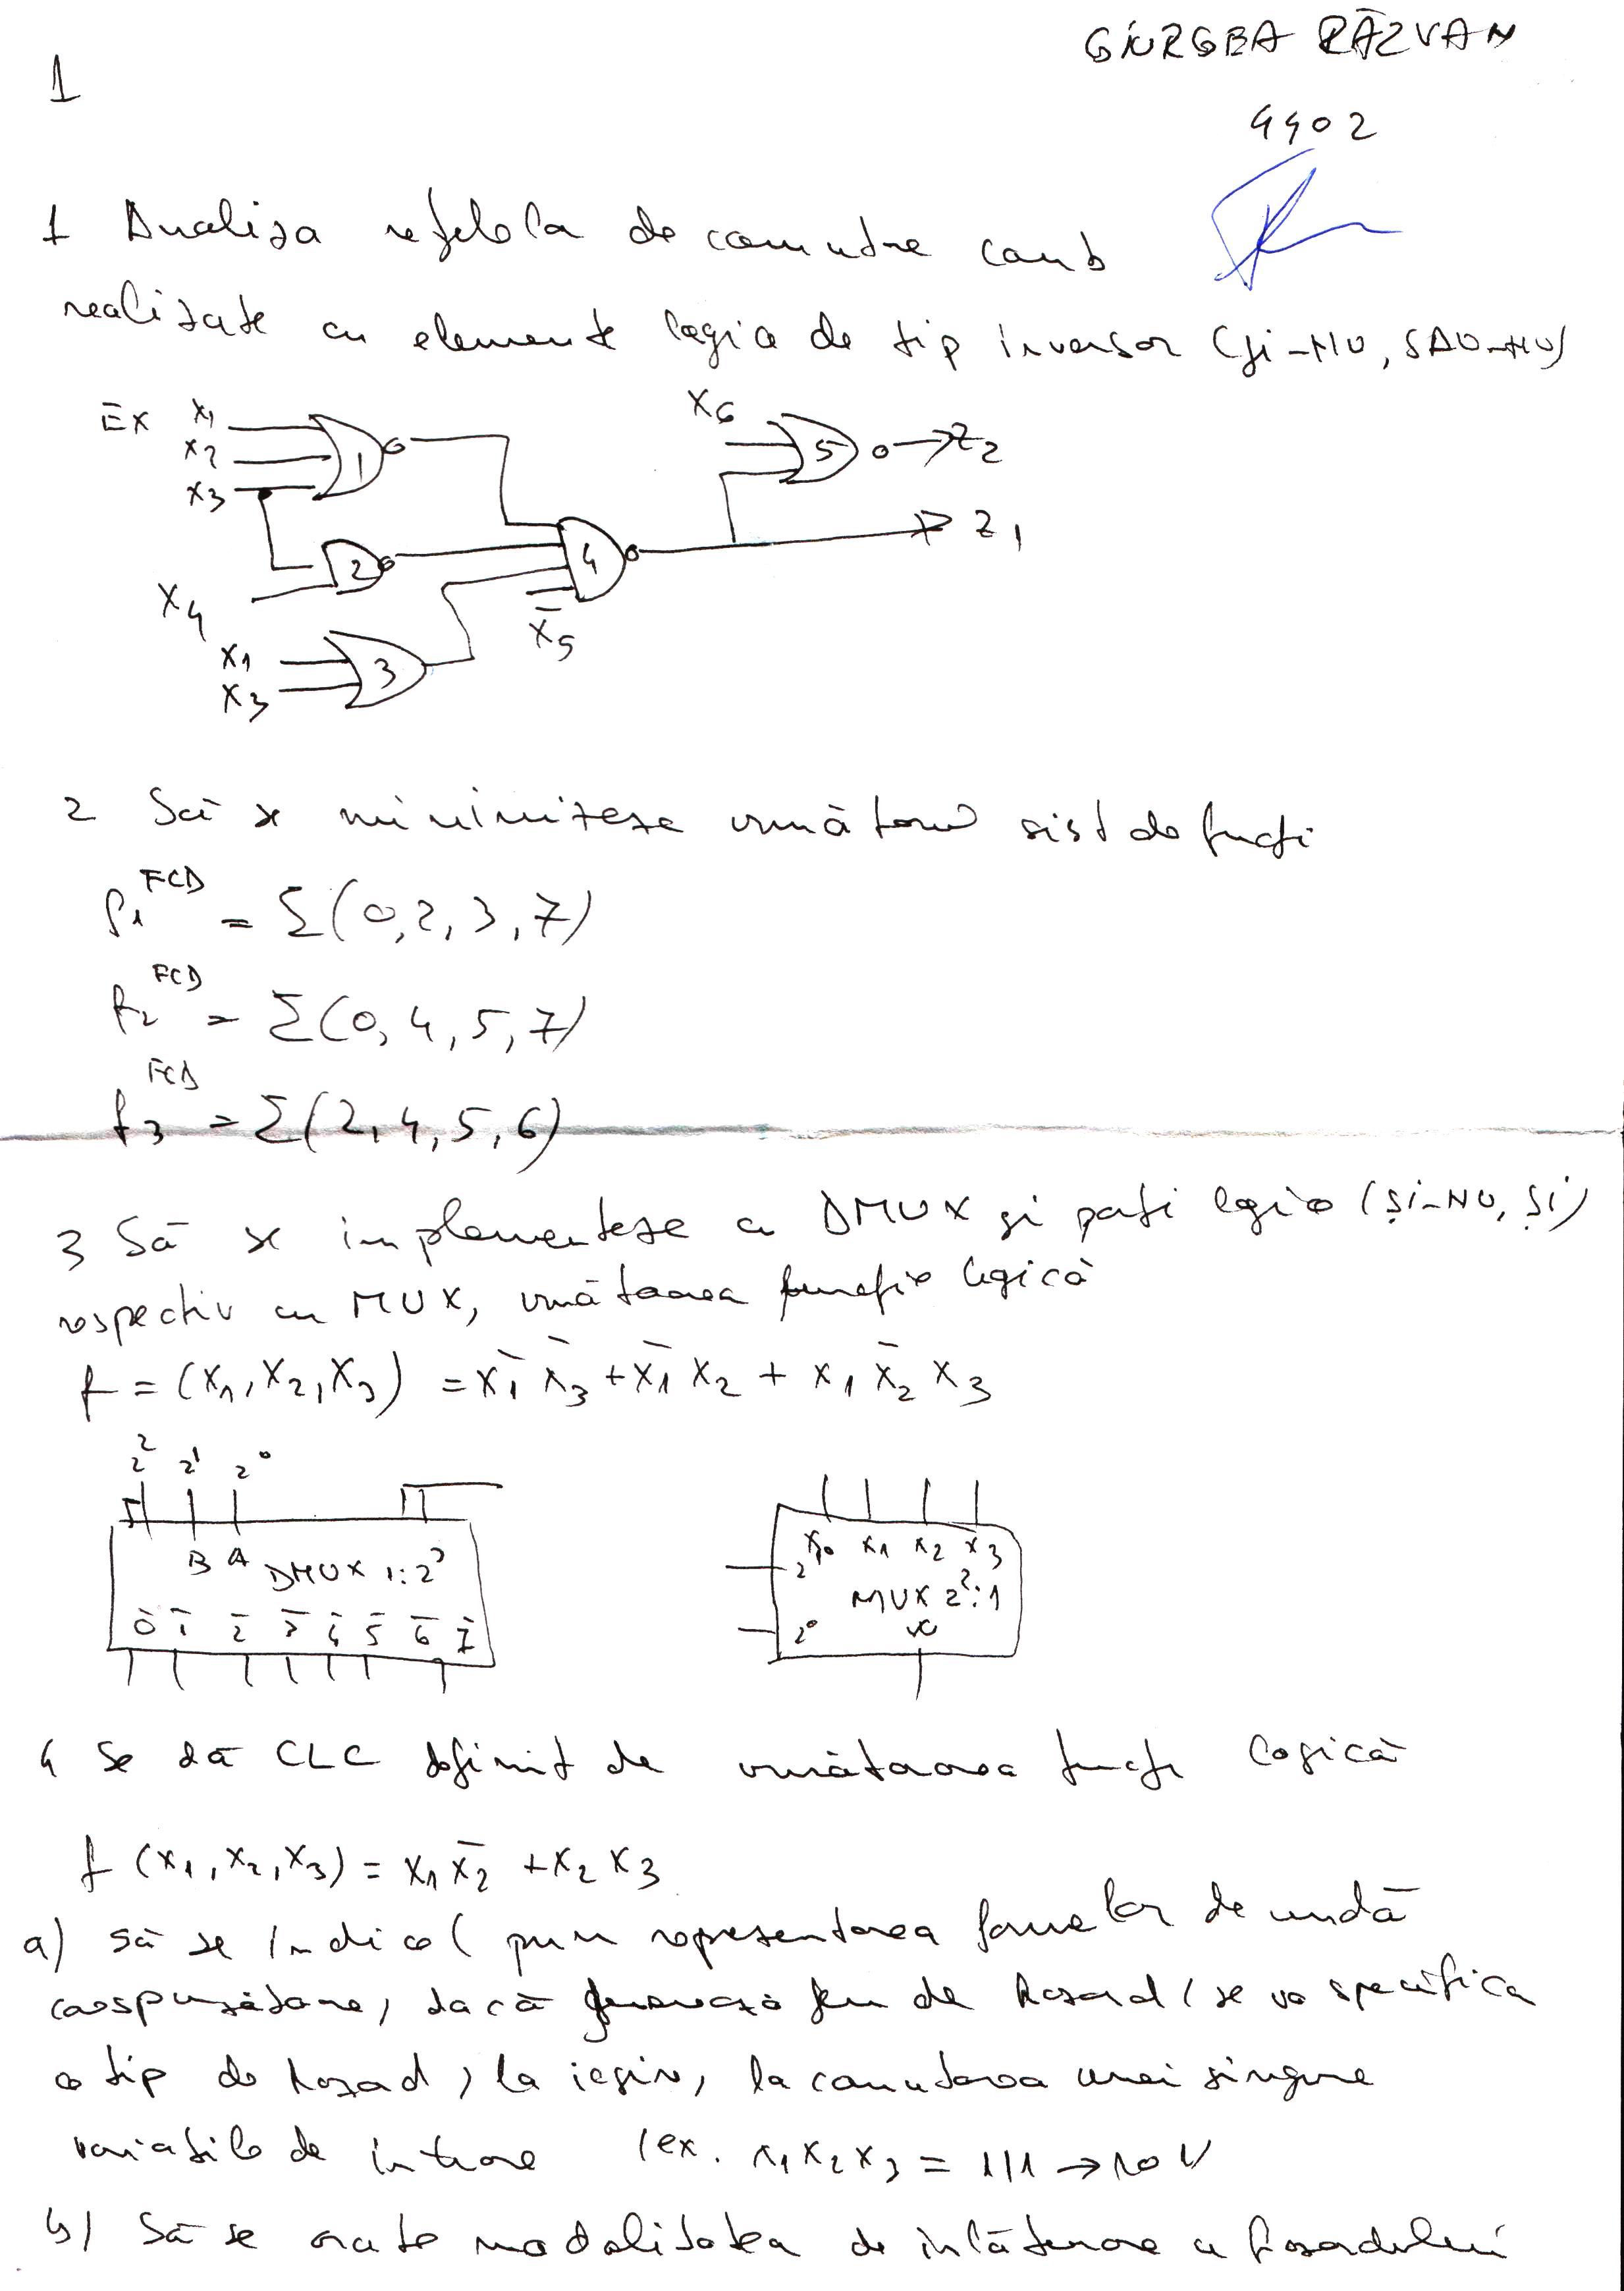 GIURGEA RĂZVAN
1
4402
1 Analiza rețelola de comutre comb
realizate cu elemente logice de tip inversor (și-NU, SAU-NU)
EX x1
x2
x3
1
x6
5
Z2
2
4
Z1
x4
x̄5
x1
x3
3
2 Să se minimizeze următorul sist de funcți
f1 FCD = Σ(0,2,3,7)
f2 FCD = Σ(0,4,5,7)
f3 FCD = Σ(2,4,5,6)
3 Să se implementeze cu DMUX și porți logice (ȘI-NU, ȘI)
respectiv cu MUX, următoarea funcție logică
f = (x1,x2,x3) = x̄1 x̄3 + x̄1 x2 + x1 x̄2 x3
2² 2¹ 2⁰
B A DMUX 1:2³
0̄ 1̄ 2̄ 3̄ 4̄ 5̄ 6̄ 7̄
x0 x1 x2 x3
2¹
MUX 2²:1
2⁰
4 Se dă CLC definit de următoarea funcți logică
f (x1,x2,x3) = x1 x̄2 + x2 x3
a) să se indice (prin reprezentarea formelor de undă
corespunzătoare, dacă generează fen de hazard (se va specifica
ce tip de hazard, la ieșire, la comutarea unei singure
variabile de intrare (ex. x1x2x3 = 111 → 101
b) Să se arate modalitatea de înlăturare a hazardului